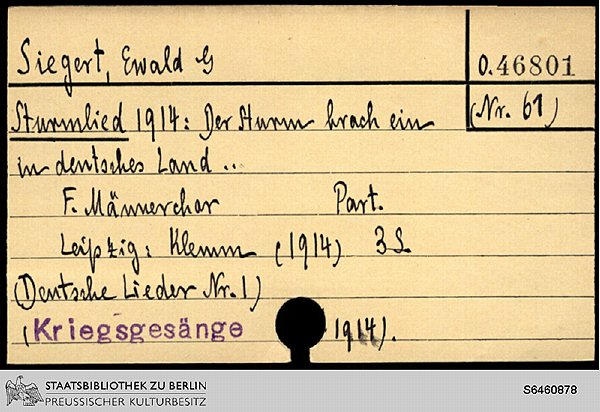 Siegert, Ewald G
O.46801
Sturmlied 1914: Der Sturm brach ein
(Nr. 61)
in deutsches Land ..
F. Männerchor Part.
Leipzig: Klemm (1914) 3 S.
(Deutsche Lieder Nr. 1)
(Kriegsgesänge 1914).
STAATSBIBLIOTHEK ZU BERLIN
PREUSSISCHER KULTURBESITZ
S6460878